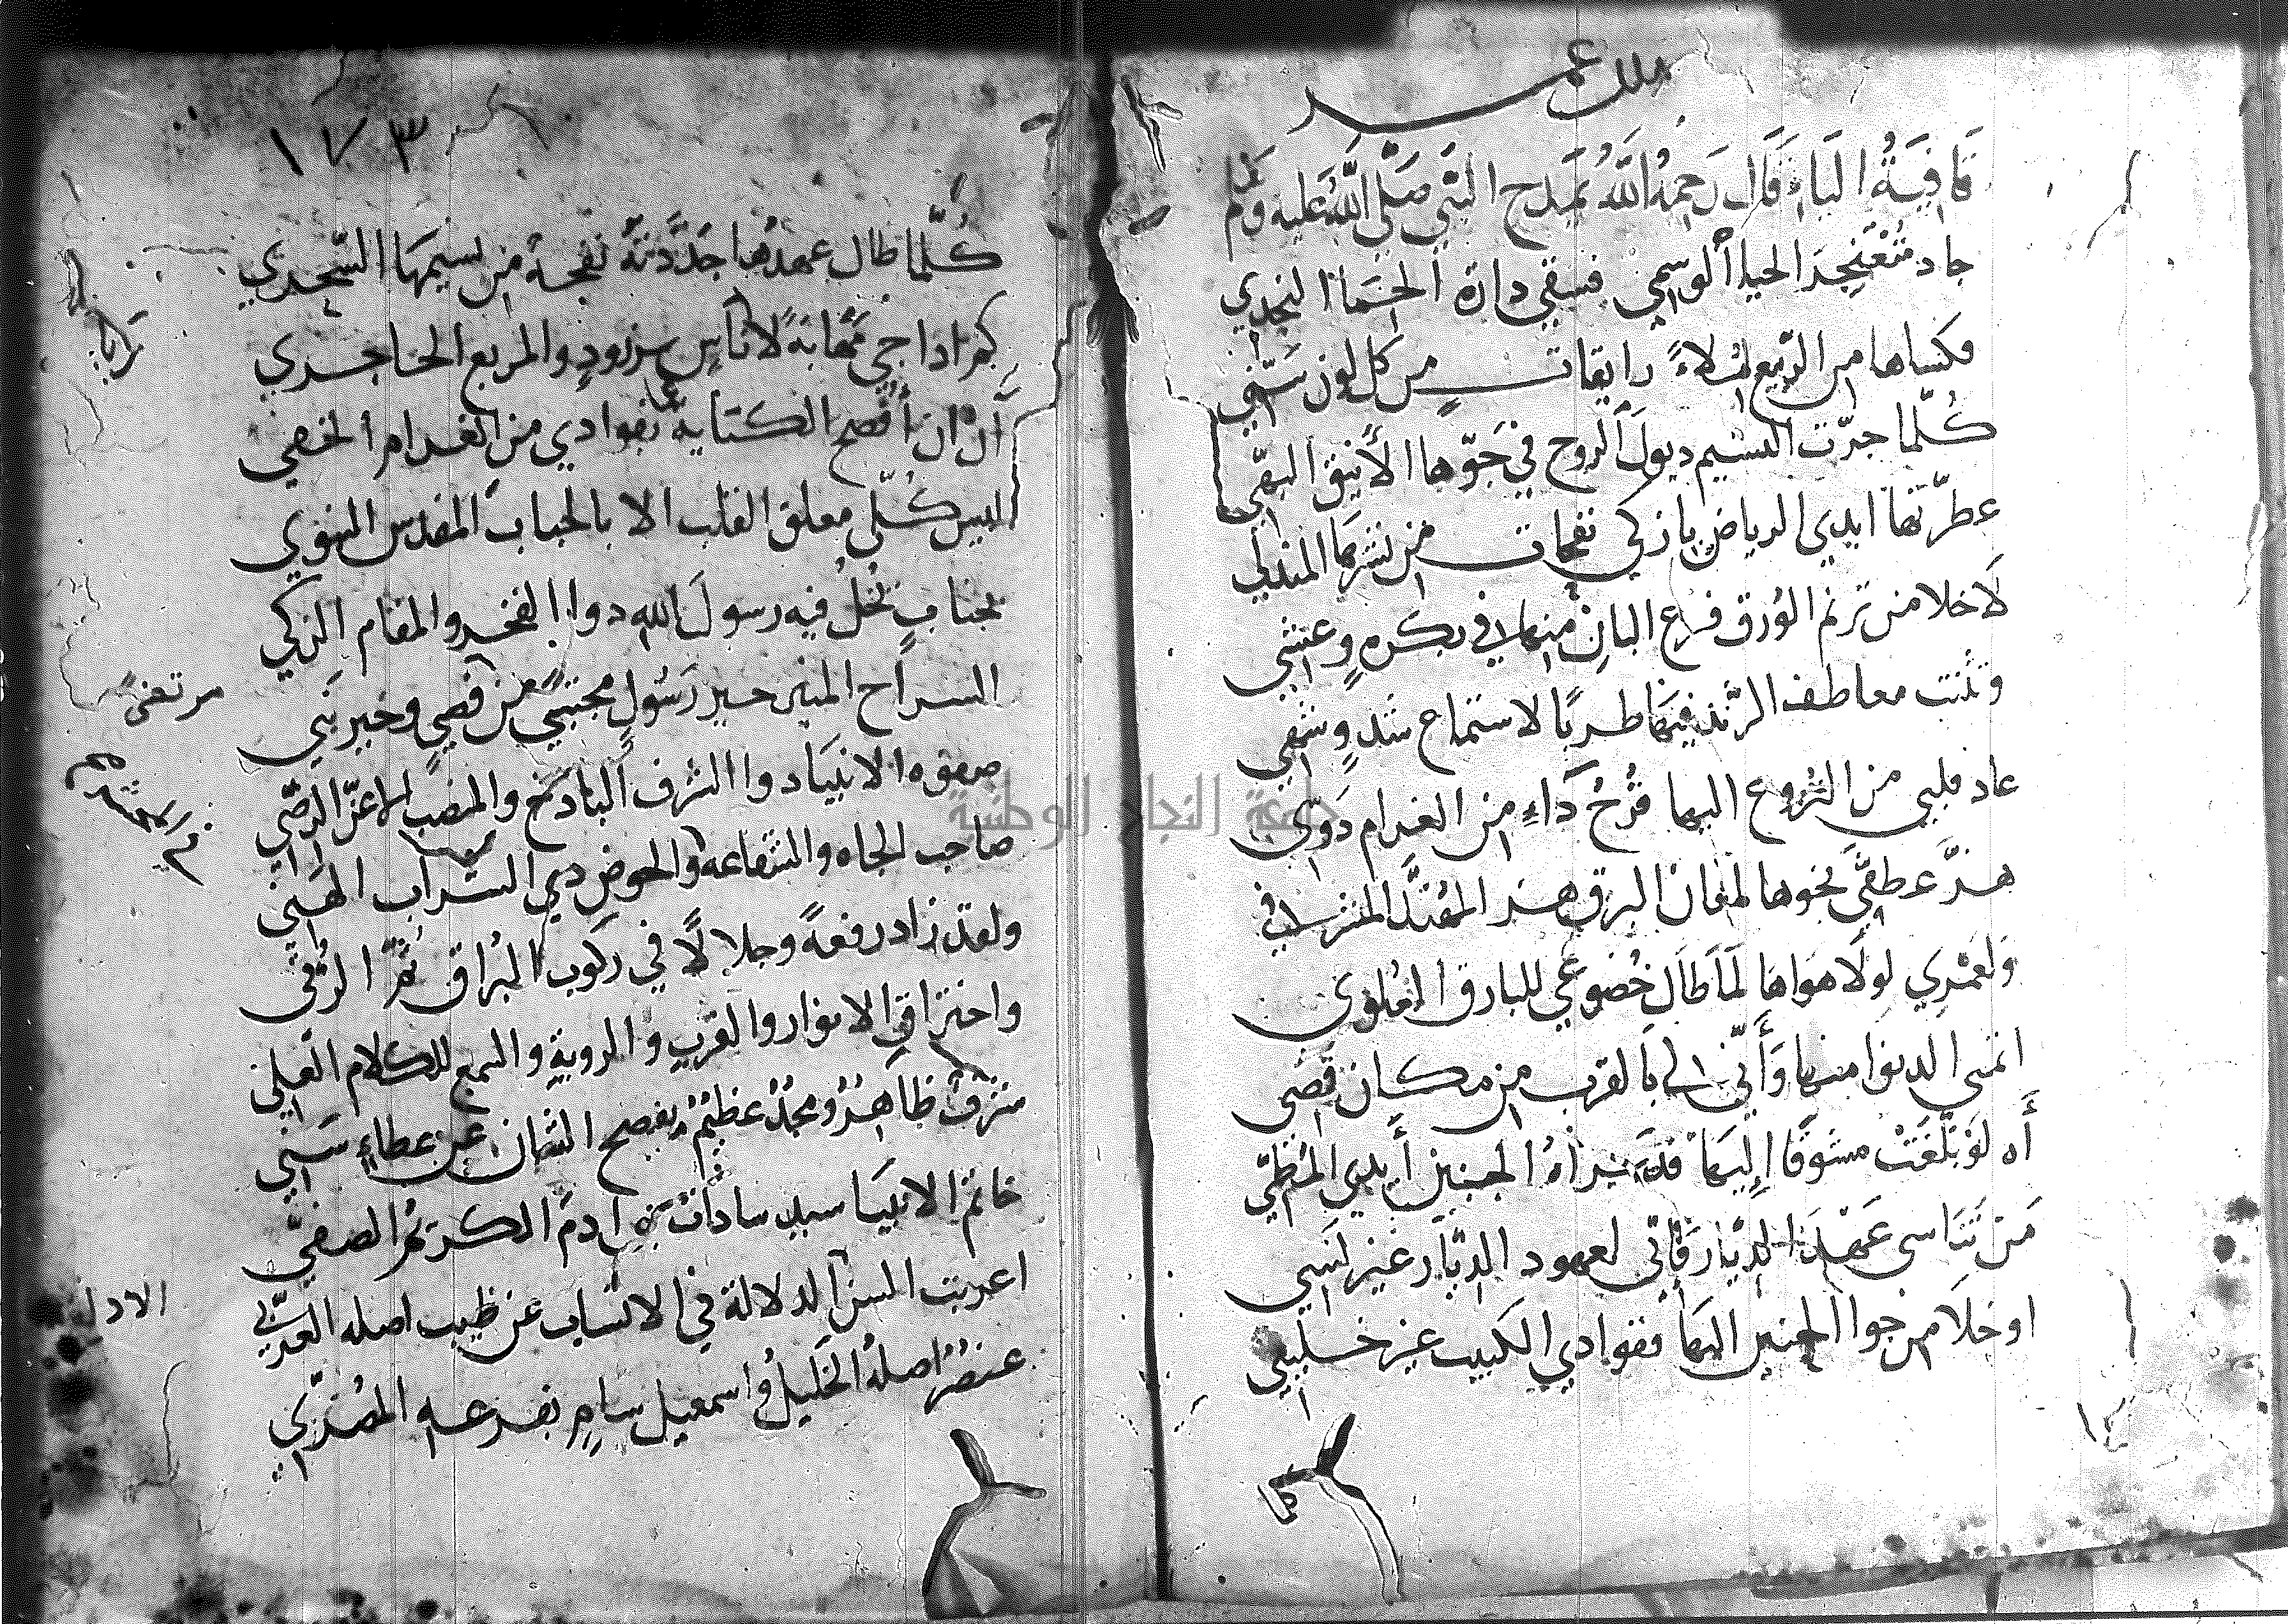 قَافِيَةُ اليَاءِ قَالَ رَحِمَهُ اللَّهُ يَمْدَح النَّبِي صَلَّى اللَّهُ عَلَيه وَلم
جاد مُثْعَنْجِرُ الحيا الوسمي فسقى دارة الحما النجدي
فكساها من الربيع ملاءً رايقات من كل لون سَنّي
كُلّما جرّت النسيم ديولَ الروح في جَوّها الأنيق البهّي
عطرّتها ايدي الرياض بازكي نفحات من نشرها المندلي
لَا خلا من ترنم الوُرق فرع البانِ منها في بكرهٍ وعشي
وتثنت معاطف الرّند فيها طربًا لاستماع شدٍ وشجي
عاد قلبي من النزوع اليها قُرْحُ دَاءٍ من الغرام دَويّ
هزَّ عطفيَّ نحوها لمعان البرق هز المهنّد المشرفي
وَلعمْرِي لولَا هَوَاهَا لَمَا طَالَ خُضوعي للبارق العُلوى
اتمني الدنوا منها وَأَنّى لي بالقرب من مكان قصَي
أَه لَوْ بَلَّغَتْ مشَوقًا إِليها قد بَراهُ الحنين أَيدي المَطيّ
مَن تَنَاسى عَهْدَ الدِّيَار فَانّي لعهود الديّار غير نَسي
او خلَا من جوا الحنين اليها ففوادي الكييب غير خلي
كُلّما طال عهدُها جَدَّدَتهُ نفحةٌ من نسيمها السّحري
كم اداجي مَهَابَةً لاناسِ بزرودٍ والمربع الحاجري
آنَ ان أُفصح الكتاية بفوادي من الغرام الخفي
ليس كُلّي معلق القلب الا بالجناب المقدس النبوي
بجنابٍ نُحلُ فيه رسول الله دوا الفخر والمقام الزكي
السراح المنير خير رَسُولٍ مجتبيً من قصيٍ وخير نَبي
مرتضىً
صفوه الانبيَا دوا الشرف البادخ والمنصب الاعزّ الرضّي
صاحب الجاه والشفاعه والحوض دي الشراب الهَني
ولقد زاد رفعةً وجلالًا في ركوب البُراق ثمَّ الرُقي
واختراق الانوار والقرب والروية والسمع للكلام العلي
شرفٌ ظاهرٌ ومجدٌ عظيمٌ يفصح الشان عن عطاءٍ سَني
خاتم الانبيَا سيد سادات بني ادمَ الكريم الصفيّ
اعربت السن الدلالة في الانساب عن طيب اصله العربّي
الادلة
عنصرٌ اصلهُ الخَليلُ واسمعيل سَامٍ بفرعهِ المضَرّي
١٧٣